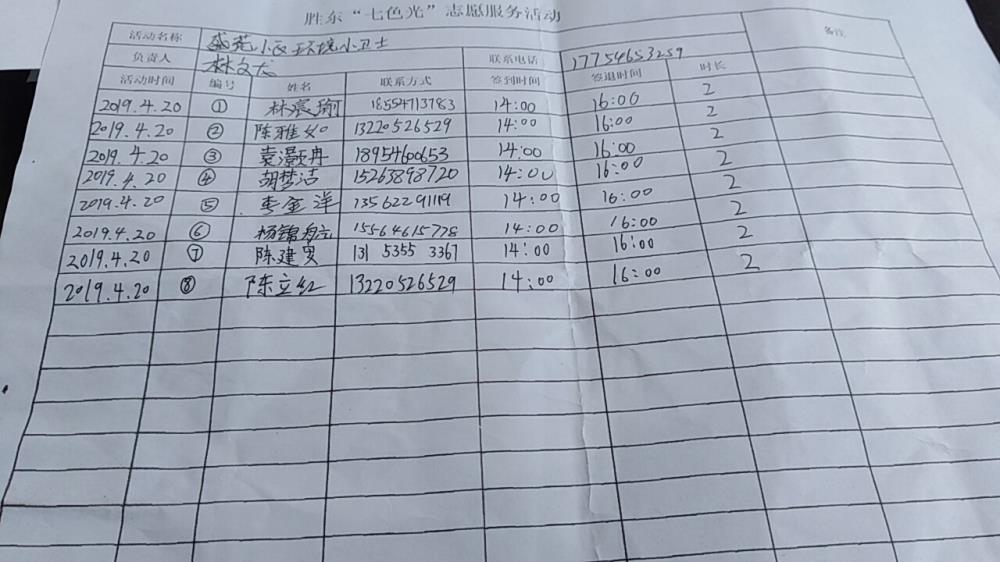 胜东“七色光”志愿服务活动
活动名称 盛苑小区环境小卫士 备注
负责人 林文龙 联系电话 17754653259
活动时间 编号 姓名 联系方式 签到时间 签退时间 时长
2019.4.20 ① 林宸瑜 18554713783 14:00 16:00 2
2019.4.20 ② 陈雅如 13220526529 14:00 16:00 2
2019.4.20 ③ 袁灏冉 18954600653 14:00 16:00 2
2019.4.20 ④ 胡梦洁 15263898720 14:00 16:00 2
2019.4.20 ⑤ 李金洋 13562291119 14:00 16:00 2
2019.4.20 ⑥ 杨锦 15564615778 14:00 16:00 2
2019.4.20 ⑦ 陈建 131 5355 3367 14:00 16:00 2
2019.4.20 ⑧ 陈立红 13220526529 14:00 16:00 2